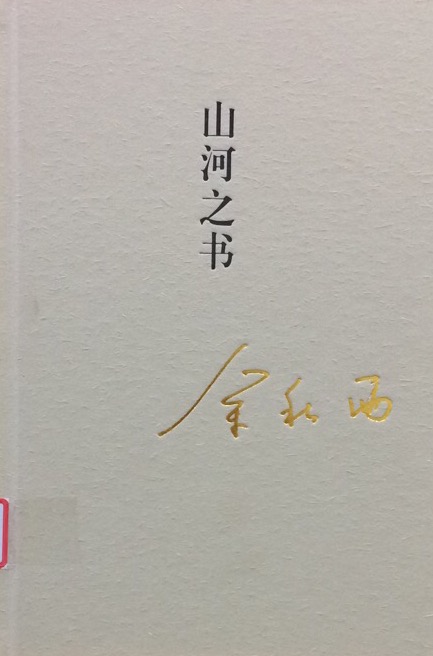 山河之书
余秋雨